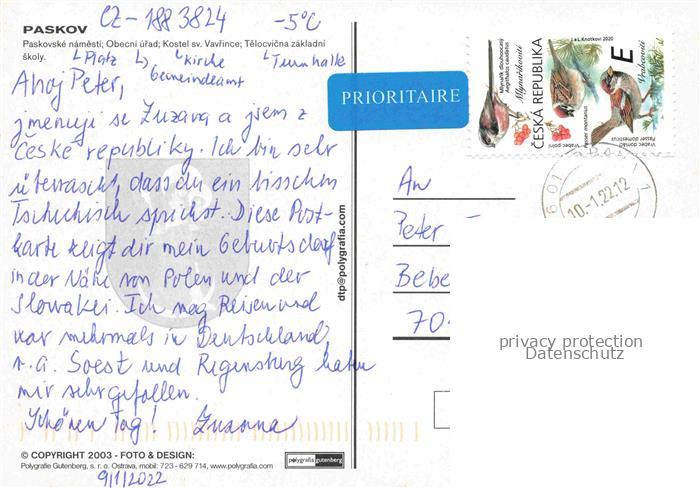 CZ-1883824 -5°C
PASKOV
Paskovské náměstí; Obecní úřad; Kostel sv. Vavřince; Tělocvična základní
školy.
↳Platz ↳ ↳Kirche ↳Turnhalle
Gemeindeamt
Ahoj Peter,
jmenuji se Zuzana a jsem z
České republiky. Ich bin sehr
überrascht, dass du ein bisschen
Tschechisch sprichst. Diese Post-
karte zeigt dir mein Geburtsdorf
in der Nähe von Polen und der
Slowakei. Ich mag Reisen und
war mehrmals in Deutschland,
u.a. Soest und Regensburg haben
mir sehr gefallen.
Schönen Tag! Zuzana
© COPYRIGHT 2003 - FOTO & DESIGN:
Polygrafie Gutenberg, s. r. o. Ostrava, mobil: 723 - 629 714, www.polygrafia.com
polygrafiagutenberg
9/1/2022
dtp@polygrafia.com
PRIORITAIRE
Mlynařík dlouhoocasý
Aegithalos caudatus
Mlynaříkovití
ČESKÁ REPUBLIKA
J. a L. Knotkovi 2020
E
Vrabec polní
Passer montanus
Vrabec domácí
Passer domesticus
Vrabcovití
601
10.-1.22.12
1
An
Peter
Bebe
70
privacy protection
Datenschutz